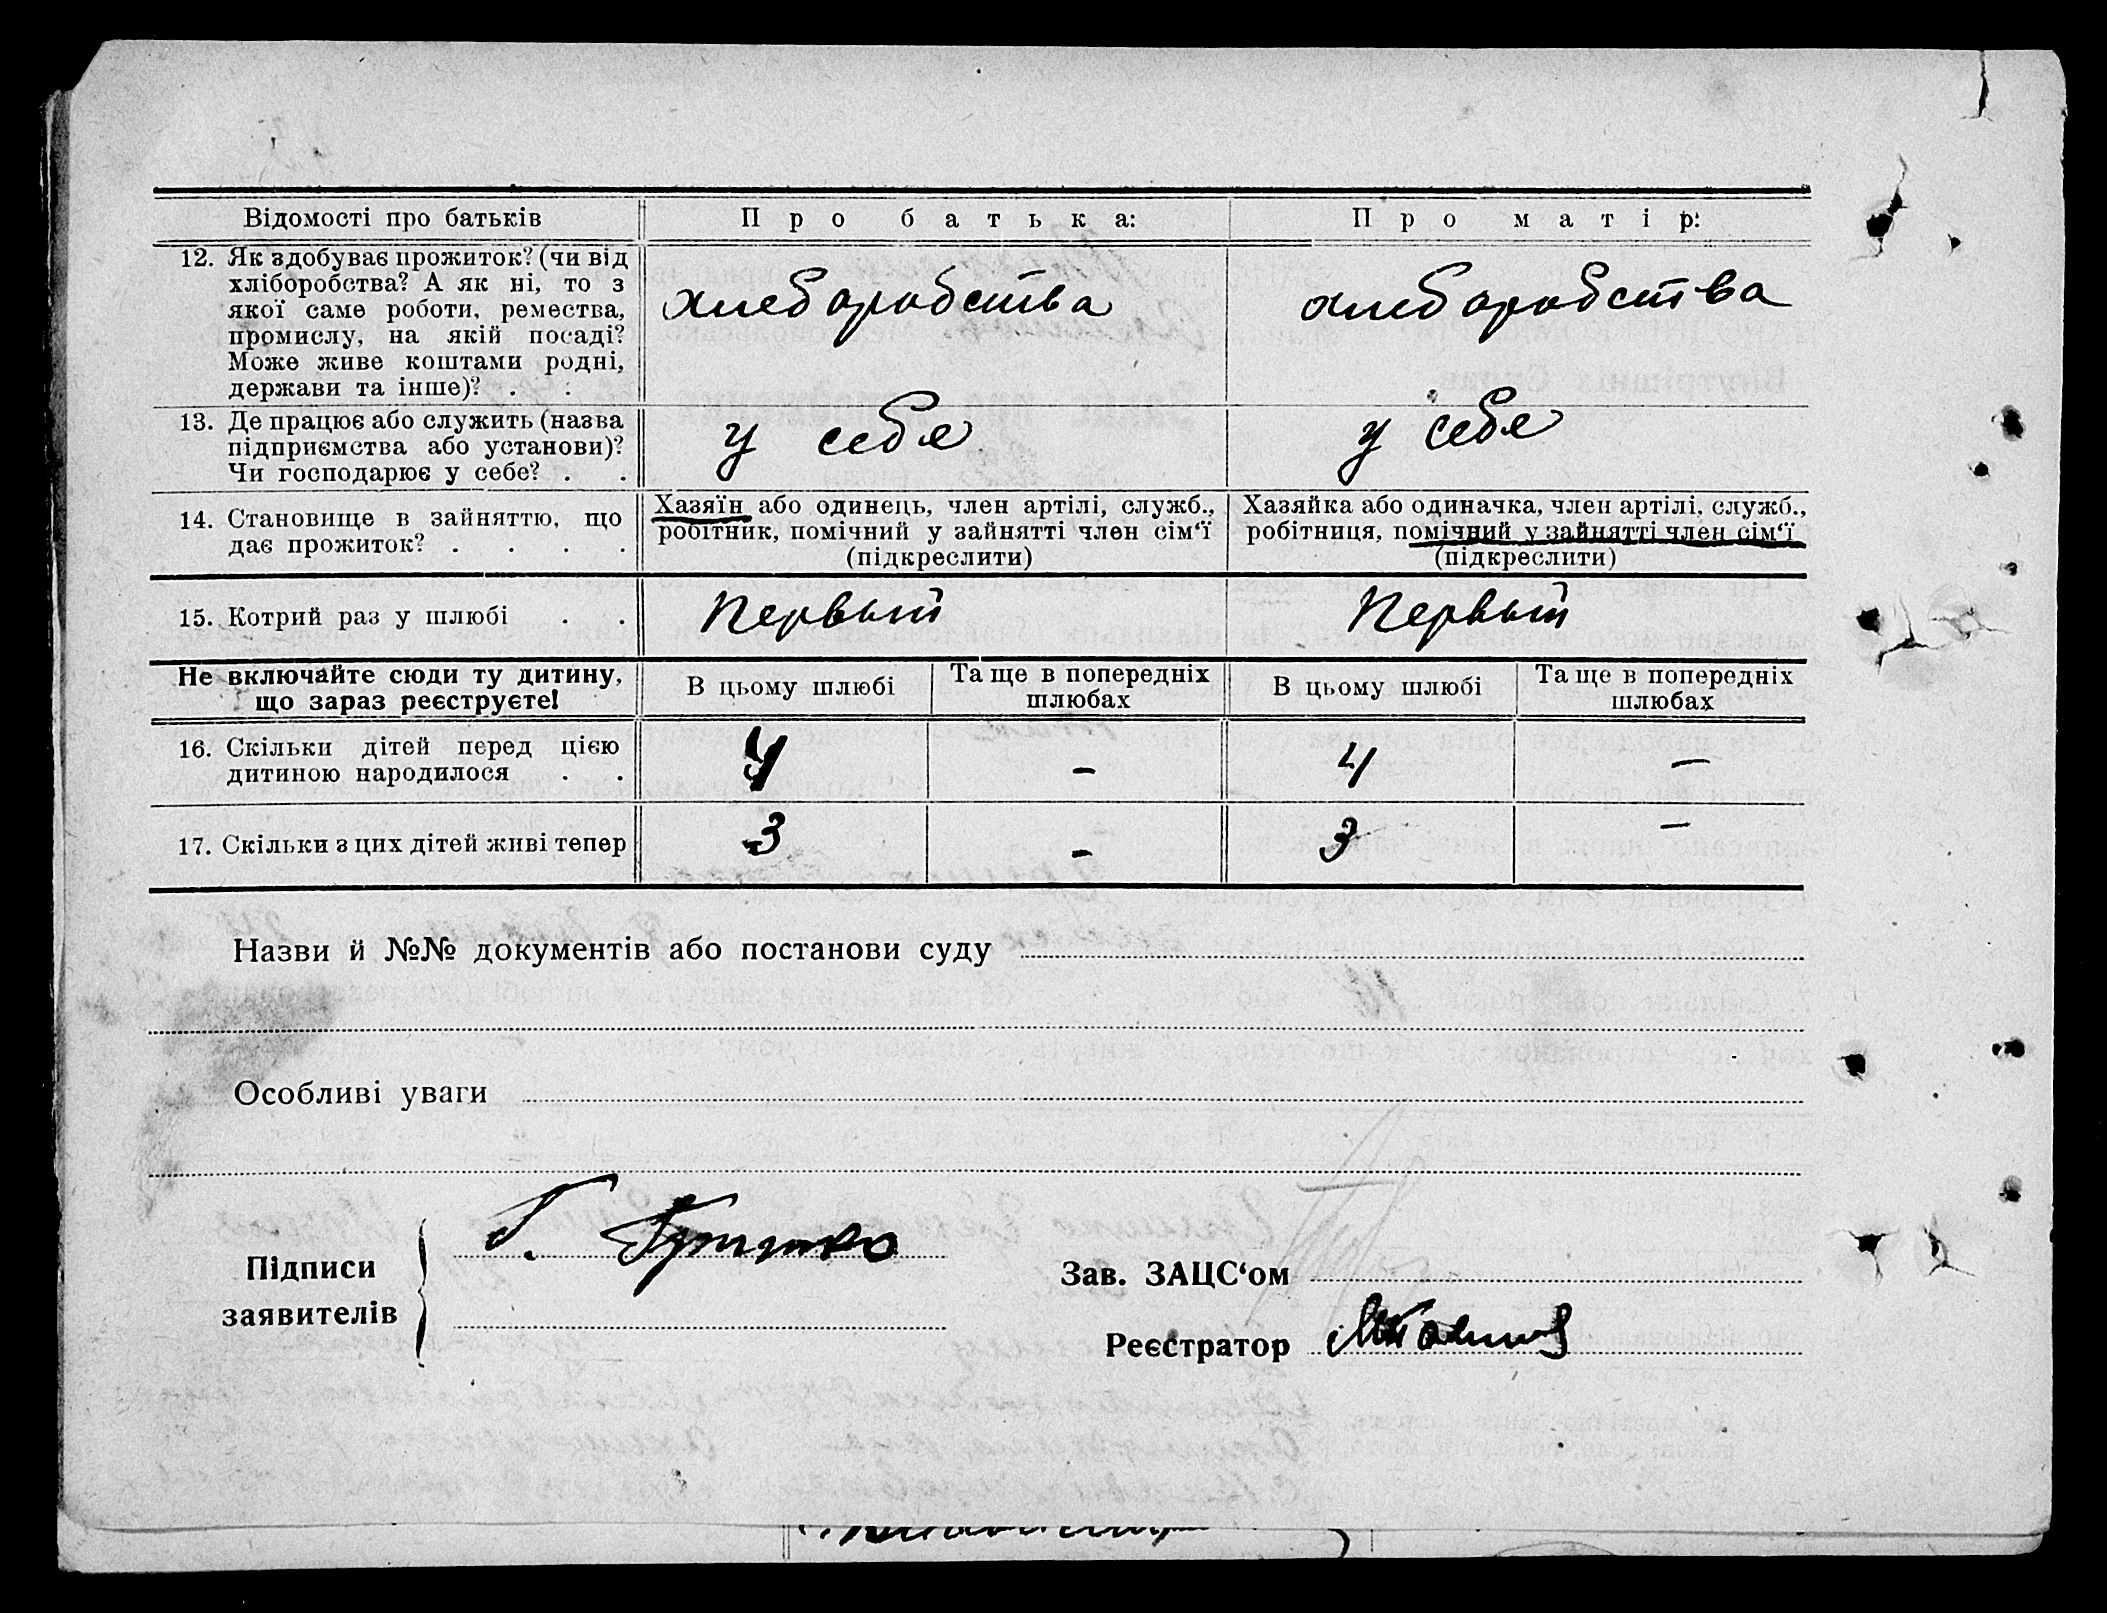 Відомості про батьків | Про батька: | Про матір:
12. Як здобуває прожиток? (чи від
хліборобства? А як ні, то з
якої саме роботи, ремества,
промислу, на якій посаді?
Може живе коштами родні,
держави та інше)? . .
хлеборобства | хлеборобства
13. Де працює або служить (назва
підприємства або установи)?
Чи господарює у себе? . .
у себя | у себя
14. Становище в зайняттю, що
дає прожиток? . . . .
Хазяїн або одинець, член артілі, служб.,
робітник, помічний у зайнятті член сім‘ї
(підкреслити)
Хазяйка або одиначка, член артілі, служб.,
робітниця, помічний у зайнятті член сім‘ї
(підкреслити)
15. Котрий раз у шлюбі . . | Первый | Первый
Не включайте сюди ту дитину,
що зараз реєструєте!
В цьому шлюбі | Та ще в попередніх
шлюбах
В цьому шлюбі | Та ще в попередніх
шлюбах
16. Скільки дітей перед цією
дитиною народилося . .
4 | - | 4 | -
17. Скільки з цих дітей живі тепер | 3 | - | 3 | -
Назви й №№ документів або постанови суду
Особливі уваги
Підписи
заявителів
Г.
Зав. ЗАЦС‘ом
Реєстратор